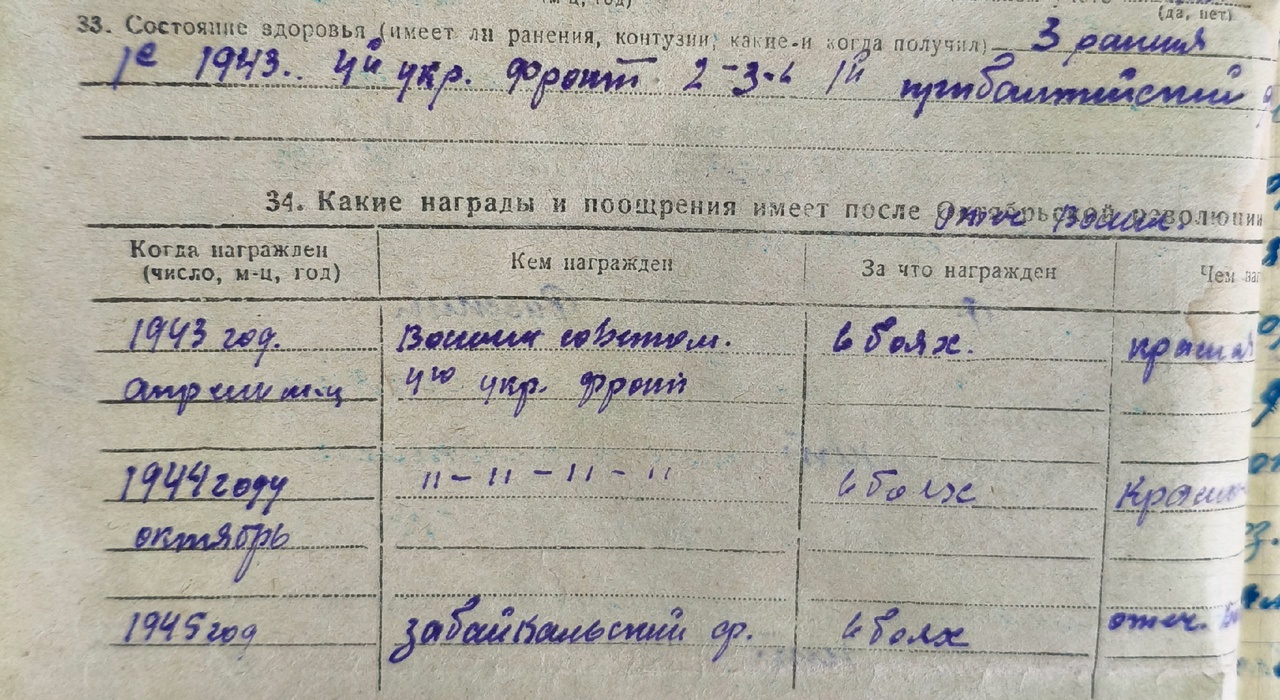 (да, нет)
33. Состояние здоровья (имеет ли ранения, контузии, какие-и когда получил) 3 рания
1е 1943.. 4й укр. Фронт 2-3-е 1й прибалтийский
34. Какие награды и поощрения имеет после Октябрьской революции
Отеч войны.
Когда награжден (число, м-ц, год)
Кем награжден
За что награжден
Чем наг
1943 год.
Воении советом.
в боях.
красная
апрели м-ц
4го укр. фронт
1944 году
11 - 11 - 11 - 11
в боях
Красно
октябрь
1945 год
забайкальский ф.
в боях
отеч.